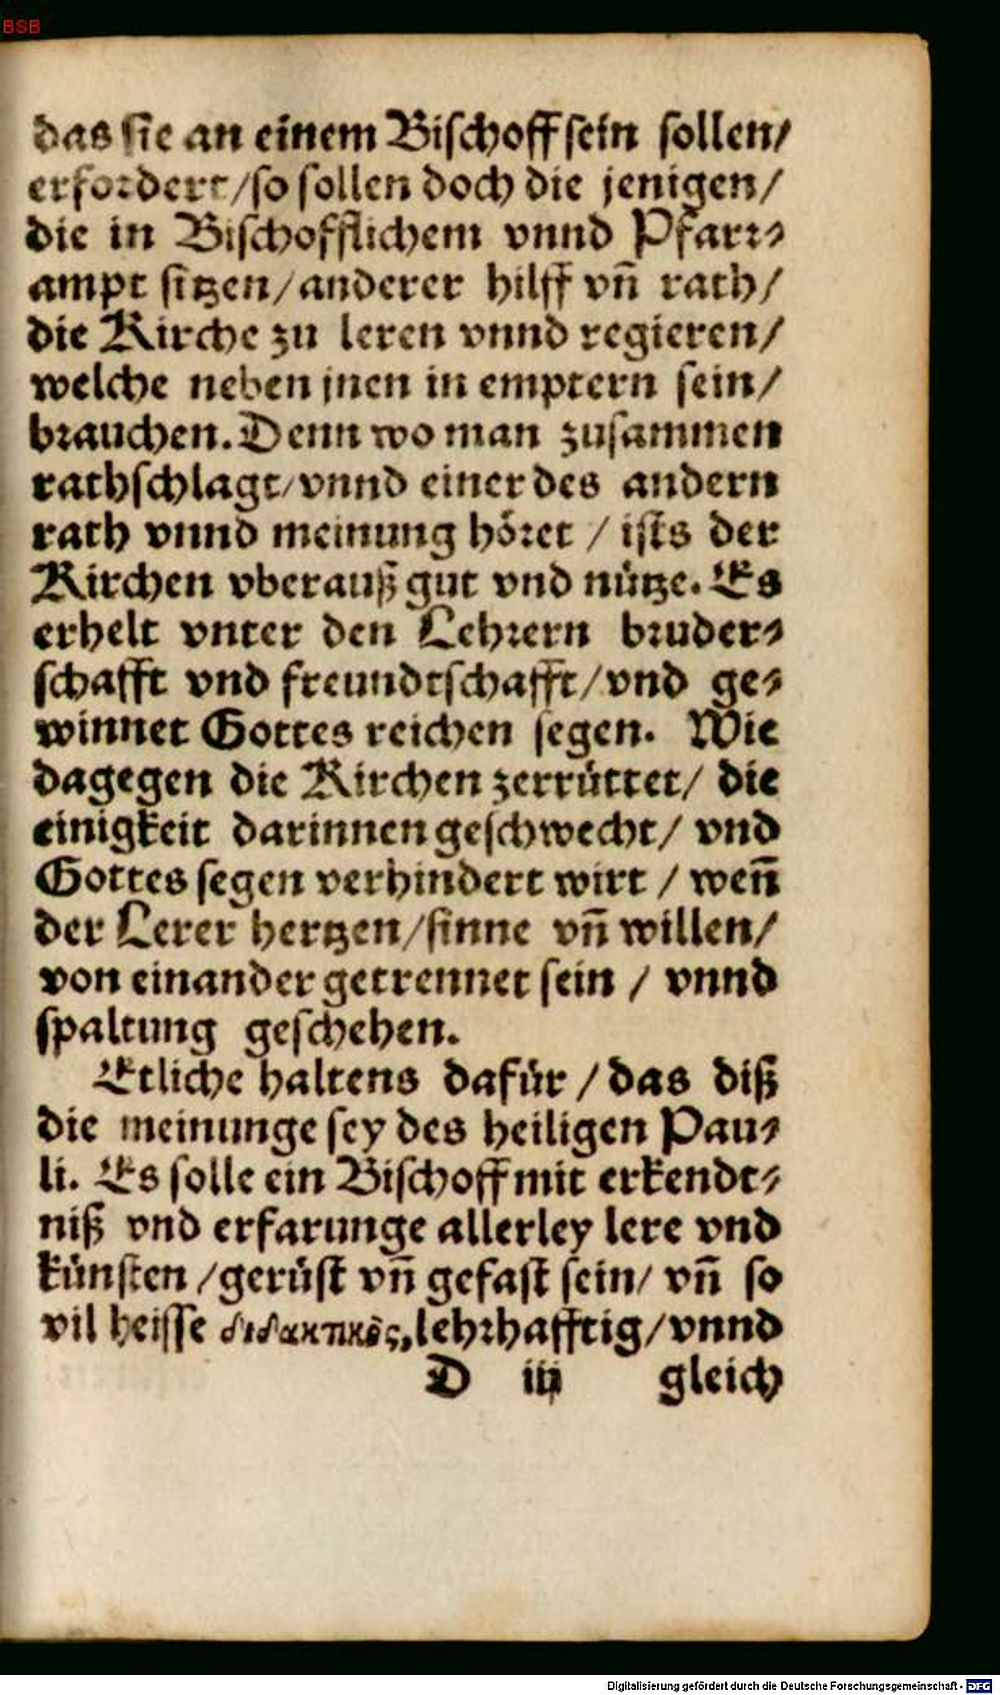 BSB
das sie an einem Bischoff sein sollen/
erfordert/so sollen doch die jenigen/
die in Bischofflichem vnnd Pfarr⸗
ampt sitzen/anderer hilff vn̄ rath/
die Kirche zu leren vnnd regieren/
welche neben jnen in emptern sein/
brauchen. Denn wo man zusammen
rathschlagt/vnnd einer des andern
rath vnnd meinung höret / ists der
Kirchen vberauß gut vnd nütze. Es
erhelt vnter den Lehrern bruder⸗
schafft vnd freundtschafft/vnd ge⸗
winnet Gottes reichen segen. Wie
dagegen die Kirchen zerrüttet/ die
einigkeit darinnen geschwecht/ vnd
Gottes segen verhindert wirt / wen̄
der Lerer hertzen/sinne vn̄ willen/
von einander getrennet sein / vnnd
spaltung geschehen.
Etliche haltens dafür / das diß
die meinunge sey des heiligen Pau⸗
li. Es solle ein Bischoff mit erkendt⸗
niß vnd erfarunge allerley lere vnd
künsten /gerüst vn̄ gefast sein/ vn̄ so
vil heisse διδακτικὸς, lehrhafftig/vnnd
D iij gleich
Digitalisierung gefördert durch die Deutsche Forschungsgemeinschaft - DFG